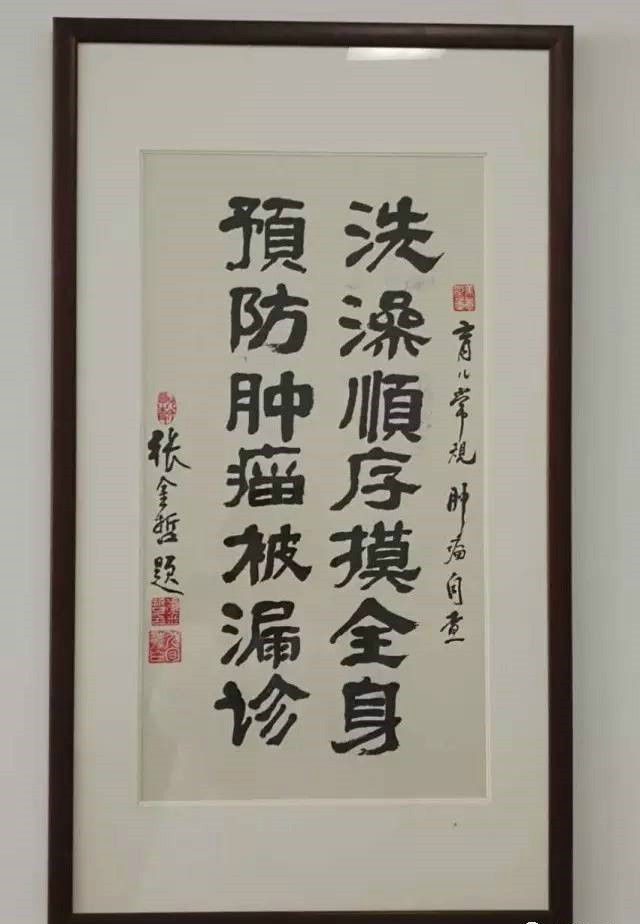 育儿常规 肿瘤自查
洗澡順序摸全身
預防肿瘤被漏诊
张金哲题